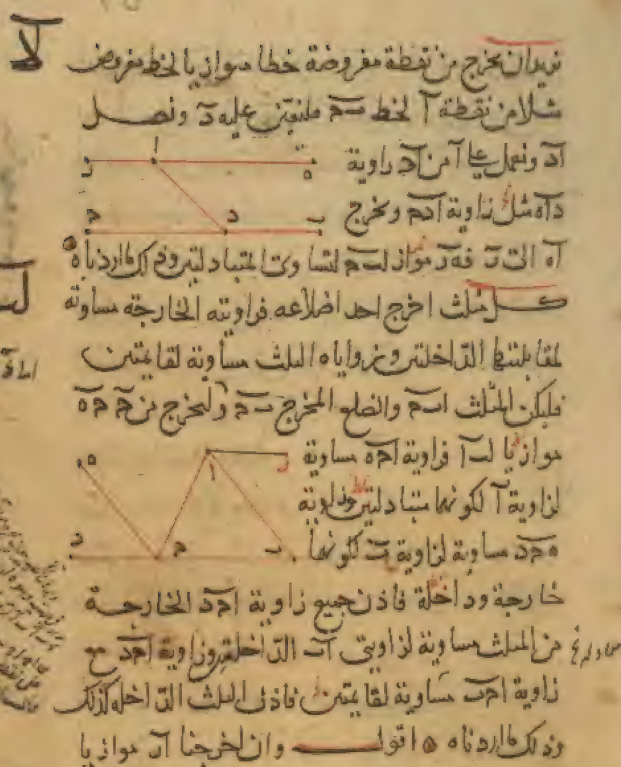 لا
نريد ان نخرج من نقطة مفروضة خطا موازيا لخط مفروض
مثلا من نقطة آ لخط ب ج فلنعين عليه د ونصل
ا د ونعمل على آ من ا د زاوية
د ا ه مثل زاوية ا د ج ونخرج
ا ه الى ر فه ر مواز لب ج لتساوى المتبادلتين وذلك ما اردناه
لب
كل مثلث اخرج احد اضلاعه فزاويته الخارجة مساوية
لمقابلتيها الداخلتين وزواياه الثلث مساوية لقائمتين
فليكن المثلث ا ب ج والضلع المخرج ب ج الى د ولنخرج من ج ج ه
موازيا لب آ فزاوية ا ج ه مساوية
لزاوية آ لكونهما متبادلتين وزاوية
ه ج د مساوية لزاوية ب لكونهما
خارجة وداخلة فاذن جميع زاوية ا ج د الخارجة
من المثلث مساوية لزاويتى آ ب الداخلتين وزاوية ا ج د مع
زاوية ا ج ب مساوية لقائمتين فاذن الثلث الداخلة كذلك
وذلك ما اردناه ه اقول وان اخرجنا ا ر موازيا